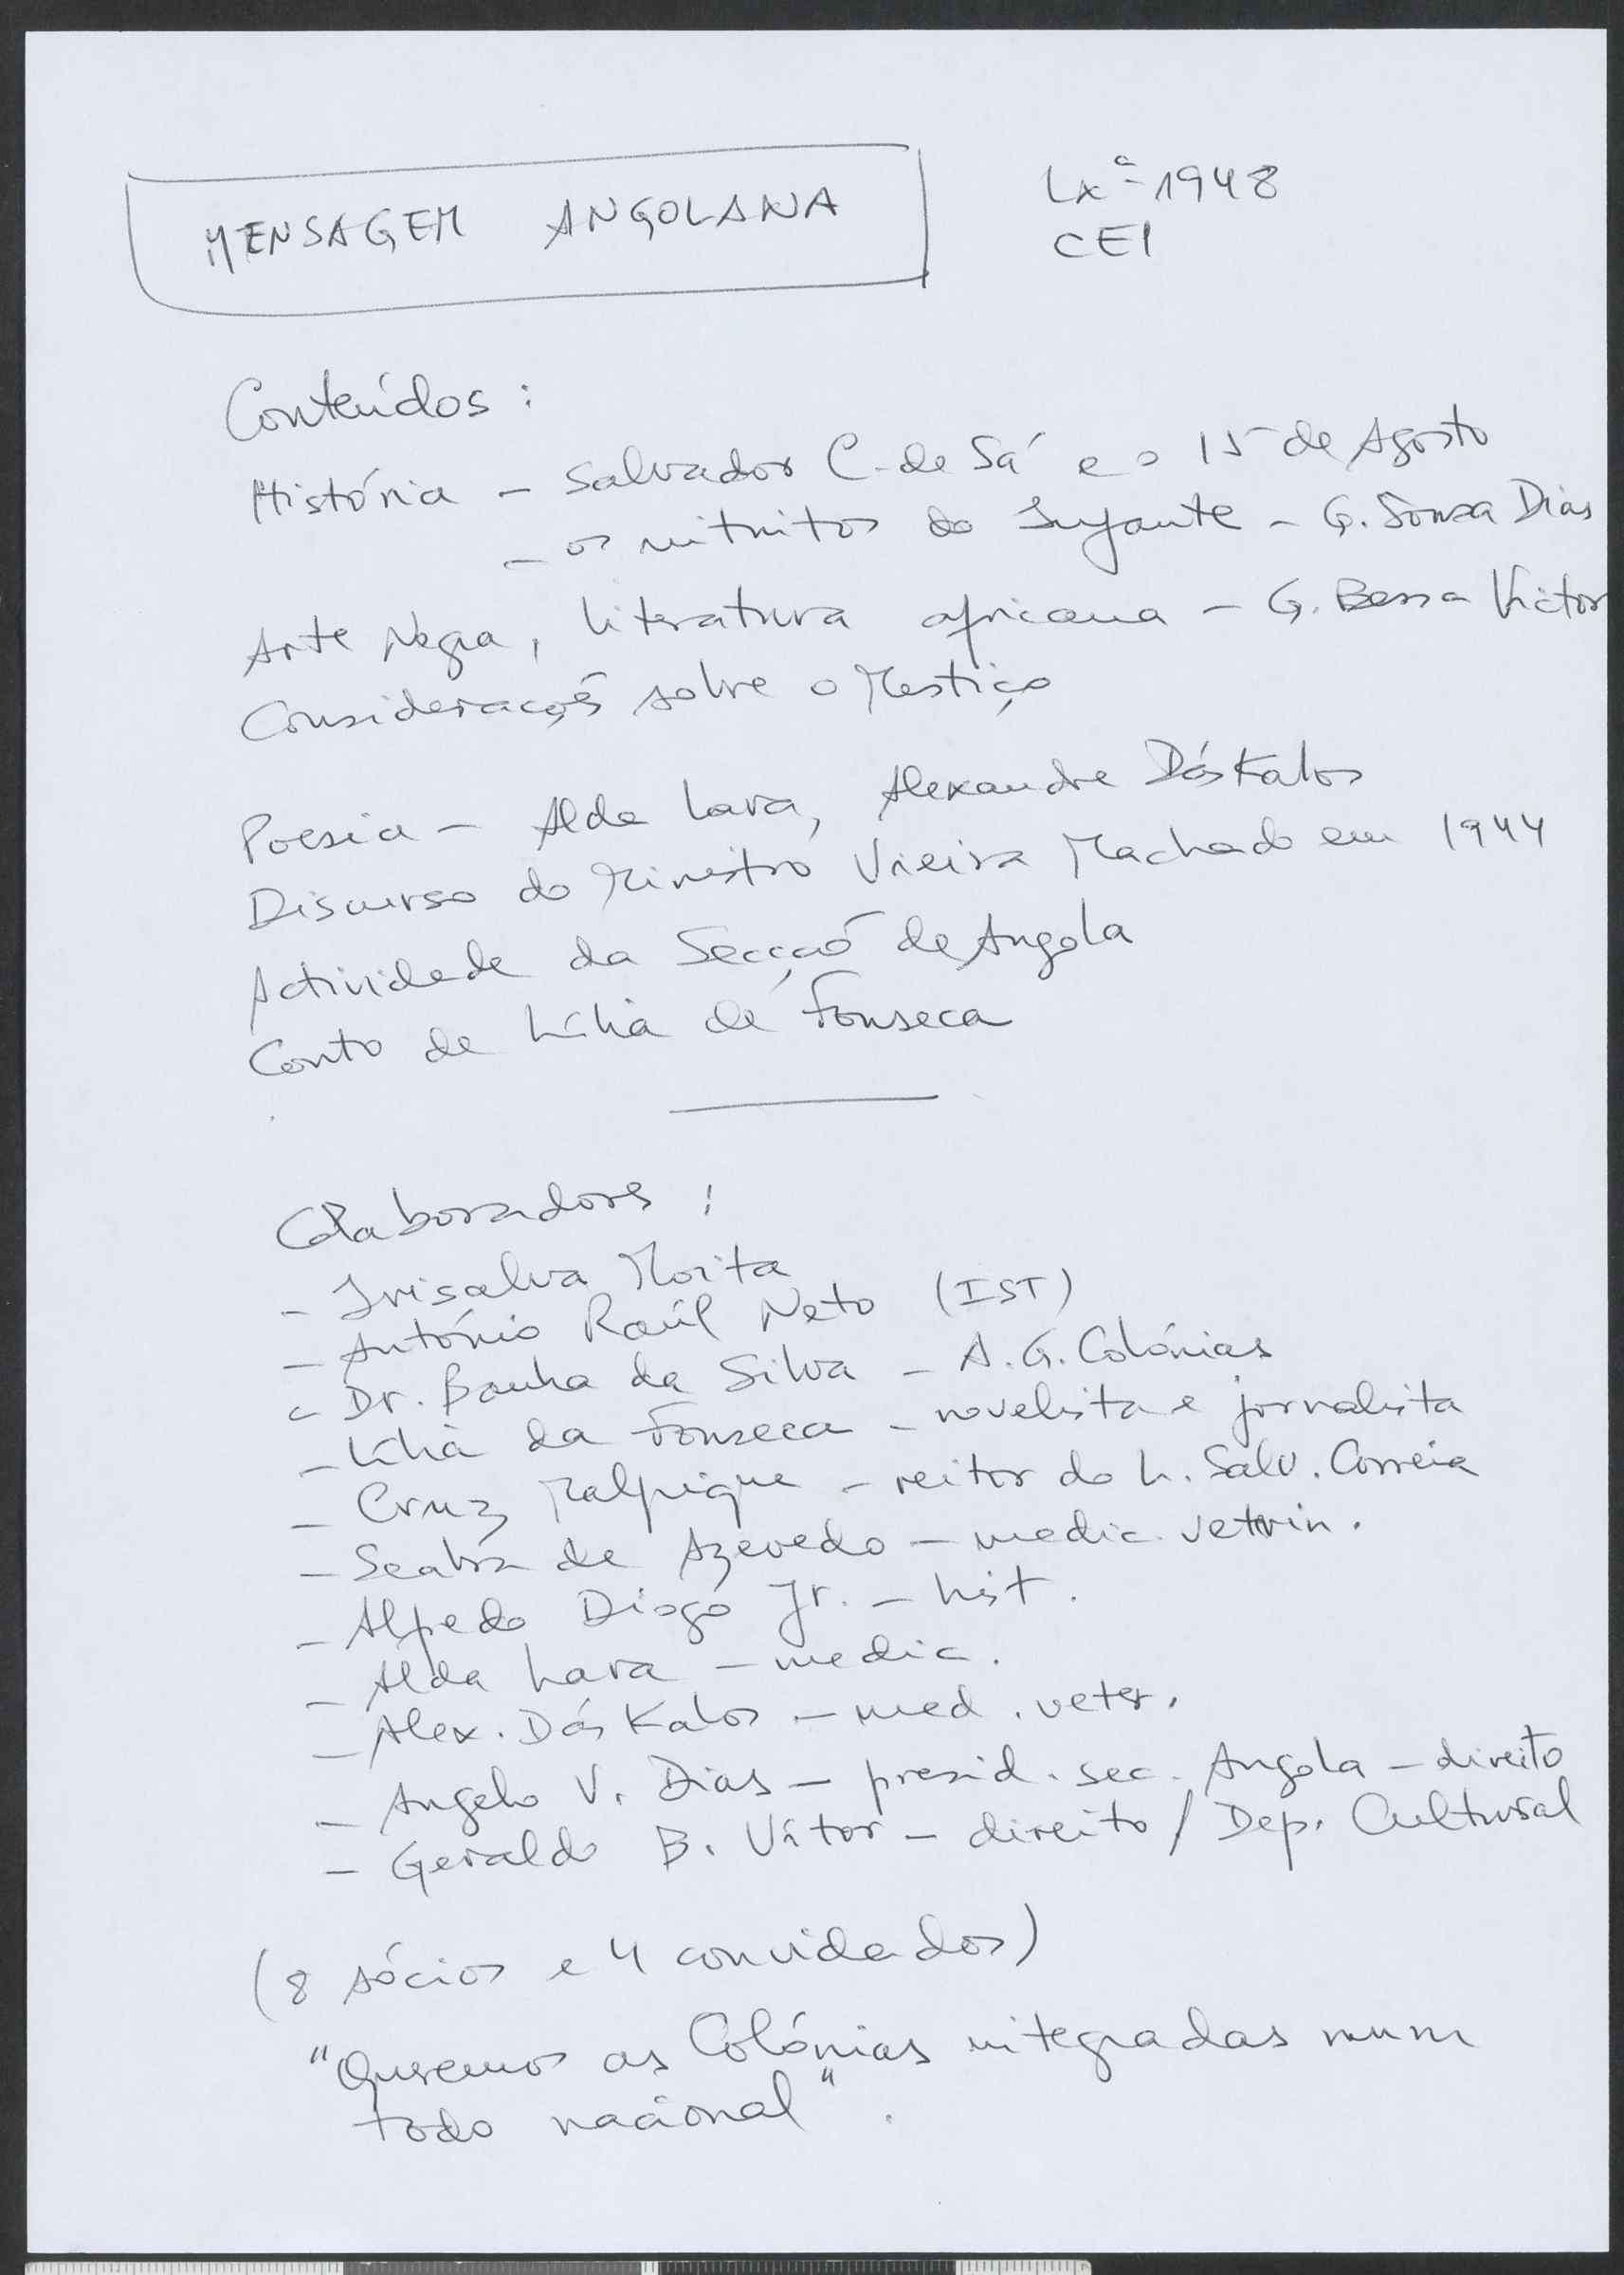 MENSAGEM ANGOLANA
Lxª-1948
CEI
Conteúdos :
História - Salvador C. de Sá e o 15 de Agosto
- os intuitos do Infante - G. Sousa Dias
Arte Negra, literatura africana - G. Bessa Victor
Considerações sobre o Mestiço
Poesia - Alda Lara, Alexandre Dáskalos
Discurso do Ministro Vieira Machado em 1944
Actividade da Secção de Angola
Conto de Lília de Fonseca
Colaboradores :
- Irisalva Moita
- António Raúl Neto (IST)
- Dr. Banha da Silva - A. G. Colónias
- Lília da Fonseca - novelista e jornalista
- Cruz Malpique - reitor do L. Salv. Correia
- Seabra de Azevedo - medic. veterin.
- Alfredo Diogo Jr. - hist.
- Alda Lara - medic.
- Alex. Dáskalos - med. veter.
- Angelo V. Dias - presid. sec. Angola - direito
- Geraldo B. Vítor - direito / Dep. Cultural
(8 sócios e 4 convidados)
"Queremos as Colónias integradas num
todo nacional".